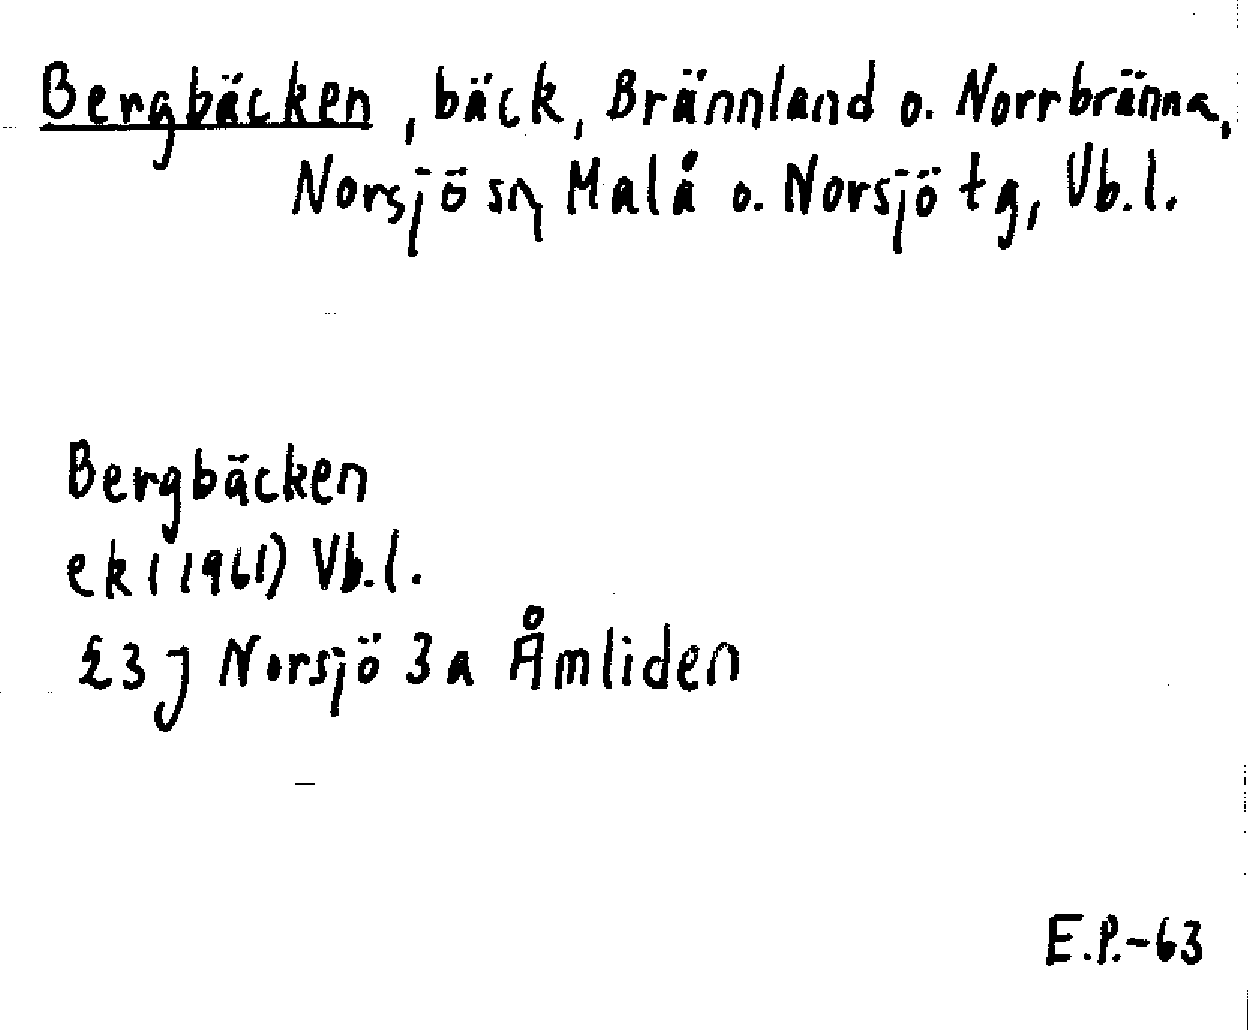 Bergbäcken, bäck, Brännland o. Norrbränna,
Norsjö sn, Malå o. Norsjö tg, Vb.l.
Bergbäcken
ek (1961) Vb.l.
23 J Norsjö 3a Åmliden
E.P.-63